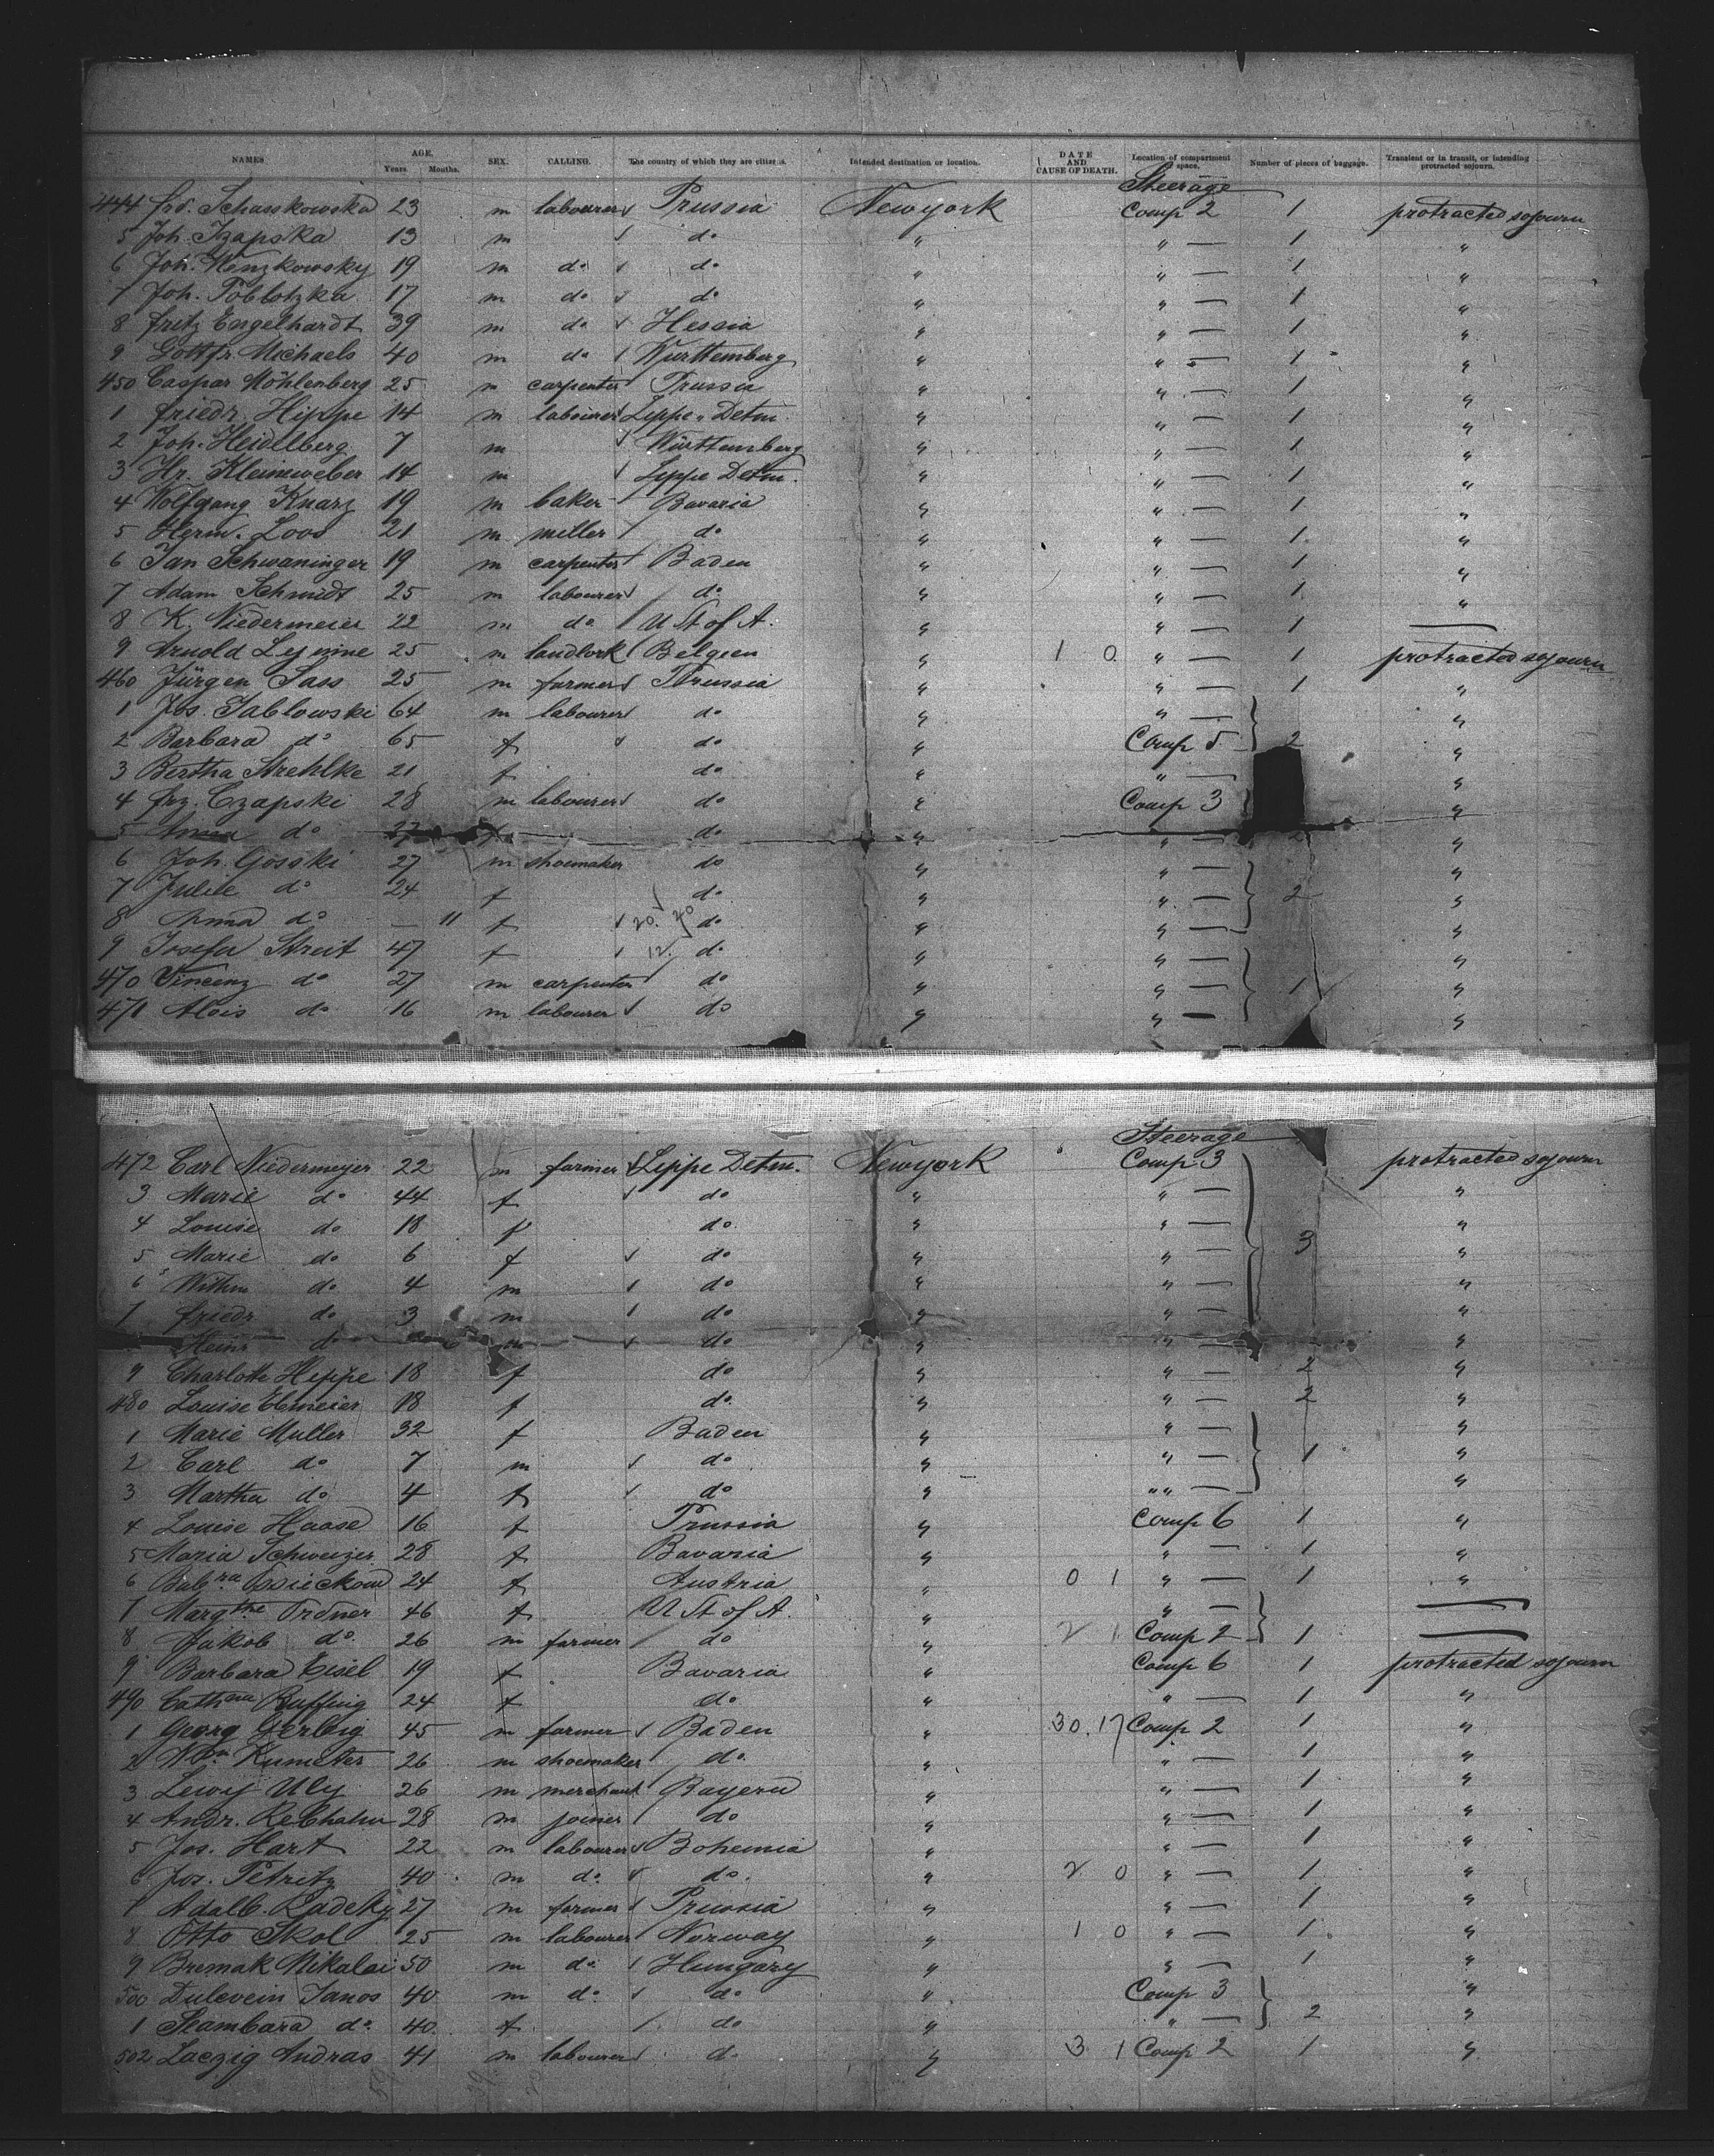 NAMES AGE. Years Months. SEX. CALLING. The country of which they are citizens. Intended destination or location. DATE AND CAUSE OF DEATH. Location of compartment space. Number of pieces of baggage. Transient or in transit, or intending protracted sojourn.
Steerage
444 Frd. Schasskowska 23 m labourer Prussia Newyork Comp 2 1 protracted sojourn
5 Joh. Szapska 13 m do " " — 1 "
6 Joh. Wenzkowsky 19 m do do " " — 1 "
7 Joh. Poblotzka 17 m do do " " — 1 "
8 Fritz Engelhardt 39 m do Hessia " " — 1 "
9 Gottfr. Michaels 40 m do Württemberg " " — 1 "
450 Caspar Möhlenberg 25 m carpenter Prussia " " — 1 "
1 Friedr. Hippe 14 m labourer Lippe Detm. " " — 1 "
2 Joh. Heidelberg 7 m Württemberg " " — 1 "
3 Hr. Kleineweber 14 m Lippe Detm. " " — 1 "
4 Wolfgang Knarz 19 m baker Bavaria " " — 1 "
5 Herm. Loos 21 m miller do " " — 1 "
6 Jan Schwaninger 19 m carpenter Baden " " — 1 "
7 Adam Schmidt 25 m labourer do " " — 1 "
8 K. Niedermeier 22 m do U St of A. " " — 1 —
9 Arnold 25 m Belgien " 1 0 " — 1 protracted sojourn
460 Jürgen Sass 25 m farmer Prussia " " — 1 "
1 Jos. Jablowski 64 m labourer do " " — "
2 Barbara do 65 f do " Comp 5 2 "
3 Bertha Strehlke 21 f do " " — "
4 Frz. Czapski 28 m labourer do " Comp 3 "
5 Anna do 27 f do " " — 2 "
6 Joh. Gosski 27 m shoemaker do " " — "
7 Julie do 24 f do " " — 2 "
8 Anna do — 11 f 20. do " " — "
9 Josefa Streit 47 f 12. do " " — "
470 Vincenz do 27 m carpenter do " " — 1 "
471 Alois do 16 m labourer do " " — "
Steerage
472 Carl Niedermeyer 22 m farmer Lippe Detm. Newyork Comp 3 protracted sojourn
3 Marie do 44 f do " " — "
4 Louise do 18 f do " " — "
5 Marie do 6 f do " " — 3 "
6 Wilhm do 4 m do " " — "
7 Friedr do 3 m do " " — "
Heinr do m do " " — "
9 Charlotte Hippe 18 f do " " — 2 "
480 Louise Ebmeier 18 f do " " — 2 "
1 Marie Muller 32 f Baden " " — "
2 Carl do 7 m do " " — 1 "
3 Martha do 4 f do " "" — "
4 Louise Haase 16 f Prussia " Comp 6 1 "
5 Maria Schweizer 28 f Bavaria " " — 1 "
6 24 f Austria " 0 1 " — 1 "
7 Margthe Ordner 46 f U St of A. " " — —
8 Jakob do 26 m farmer do " 2 1 Comp 2 1 —
9 Barbara Eisel 19 f Bavaria " Comp 6 1 protracted sojourn
490 Cathena Ruffing 24 f do " " — 1 "
1 Georg Gerbig 45 m farmer Baden " 30. 17 Comp 2 1 "
2 Wm Kumeter 26 m shoemaker do " " — 1 "
3 Lewy Uly 26 m merchant Bayern " " — 1 "
4 Andr. 28 m joiner do " " — 1 "
5 Jos. Hart 22 m labourer Bohemia " " — 1 "
6 Jos. Petritz 40 m do do. " 2 0 " — 1 "
7 Adalb. Radetky 27 m farmer Prussia " " — 1 "
8 Otto Skol 25 m labourer Norway " 1 0 " — 1 "
9 Bremak Mikalai 50 m do Hungary " " — 1 "
500 Dulevein Janos 40 m do do " Comp 3 "
1 Stambara do 40 f do " " — 2 "
502 Laczig Andras 41 m labourer do " 3 1 Comp 2 1 "